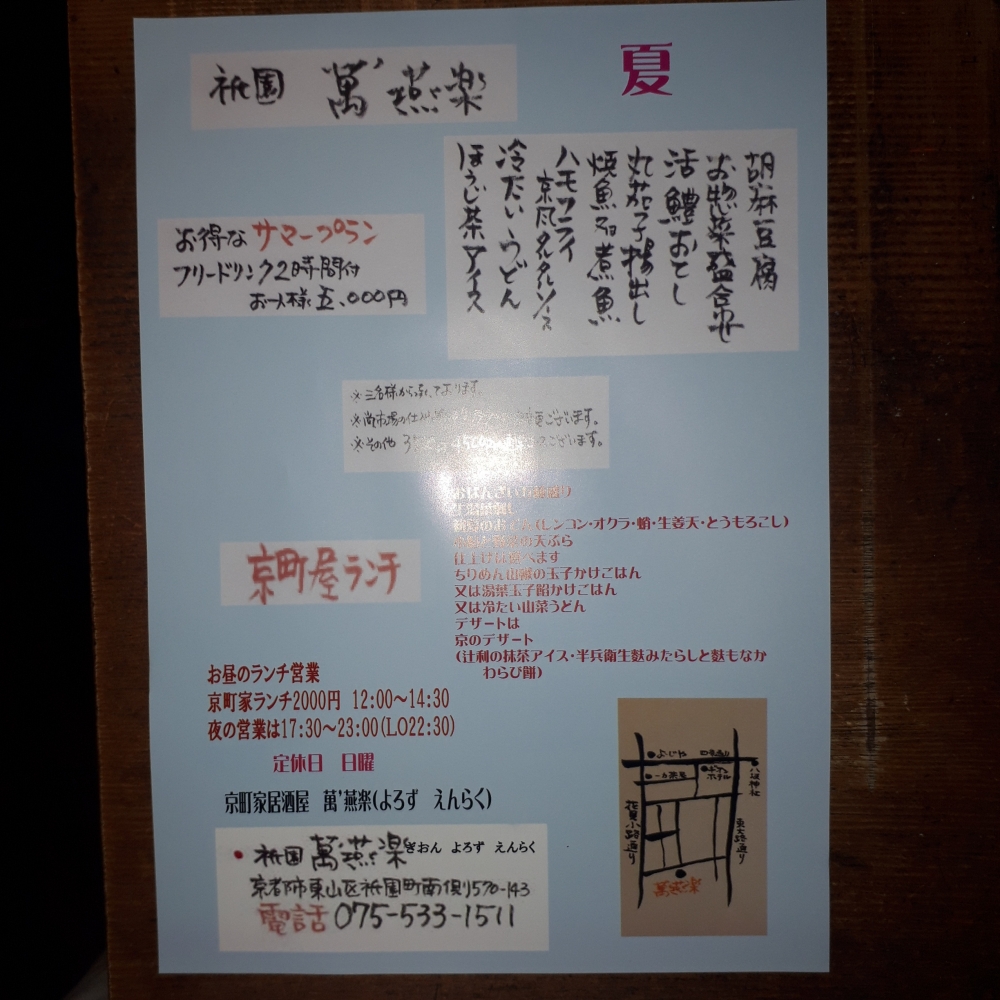 祇園 萬燕楽
夏
胡麻豆腐
お惣菜盛合せ
活鱧おとし
丸茄子揚出し
焼魚 又は 煮魚
ハモフライ
京風タルタルソース
冷たいうどん
ほうじ茶アイス
お得な サマープラン
フリードリンク2時間付
お一人様 五、000円
※三名様から承っております。
ございます。
※その他
ございます。
おばんざい
(レンコン・オクラ・蛸・生姜天・とうもろこし)
の天ぷら
仕上げは選べます
ちりめん山椒の玉子かけごはん
又は湯葉玉子餡かけごはん
又は冷たい山菜うどん
デザートは
京のデザート
(辻利の抹茶アイス・半兵衛生麩みたらしと麩もなか
わらび餅)
京町屋ランチ
お昼のランチ営業
京町家ランチ2000円 12:00〜14:30
夜の営業は17:30〜23:00(LO22:30)
定休日 日曜
京町家居酒屋 萬'燕楽(よろず えんらく)
祇園 萬燕楽 ぎおん よろず えんらく
京都市東山区祇園町南側570-143
電話 075-533-1511
八坂神社
花見小路通り
東大路通り
萬燕楽